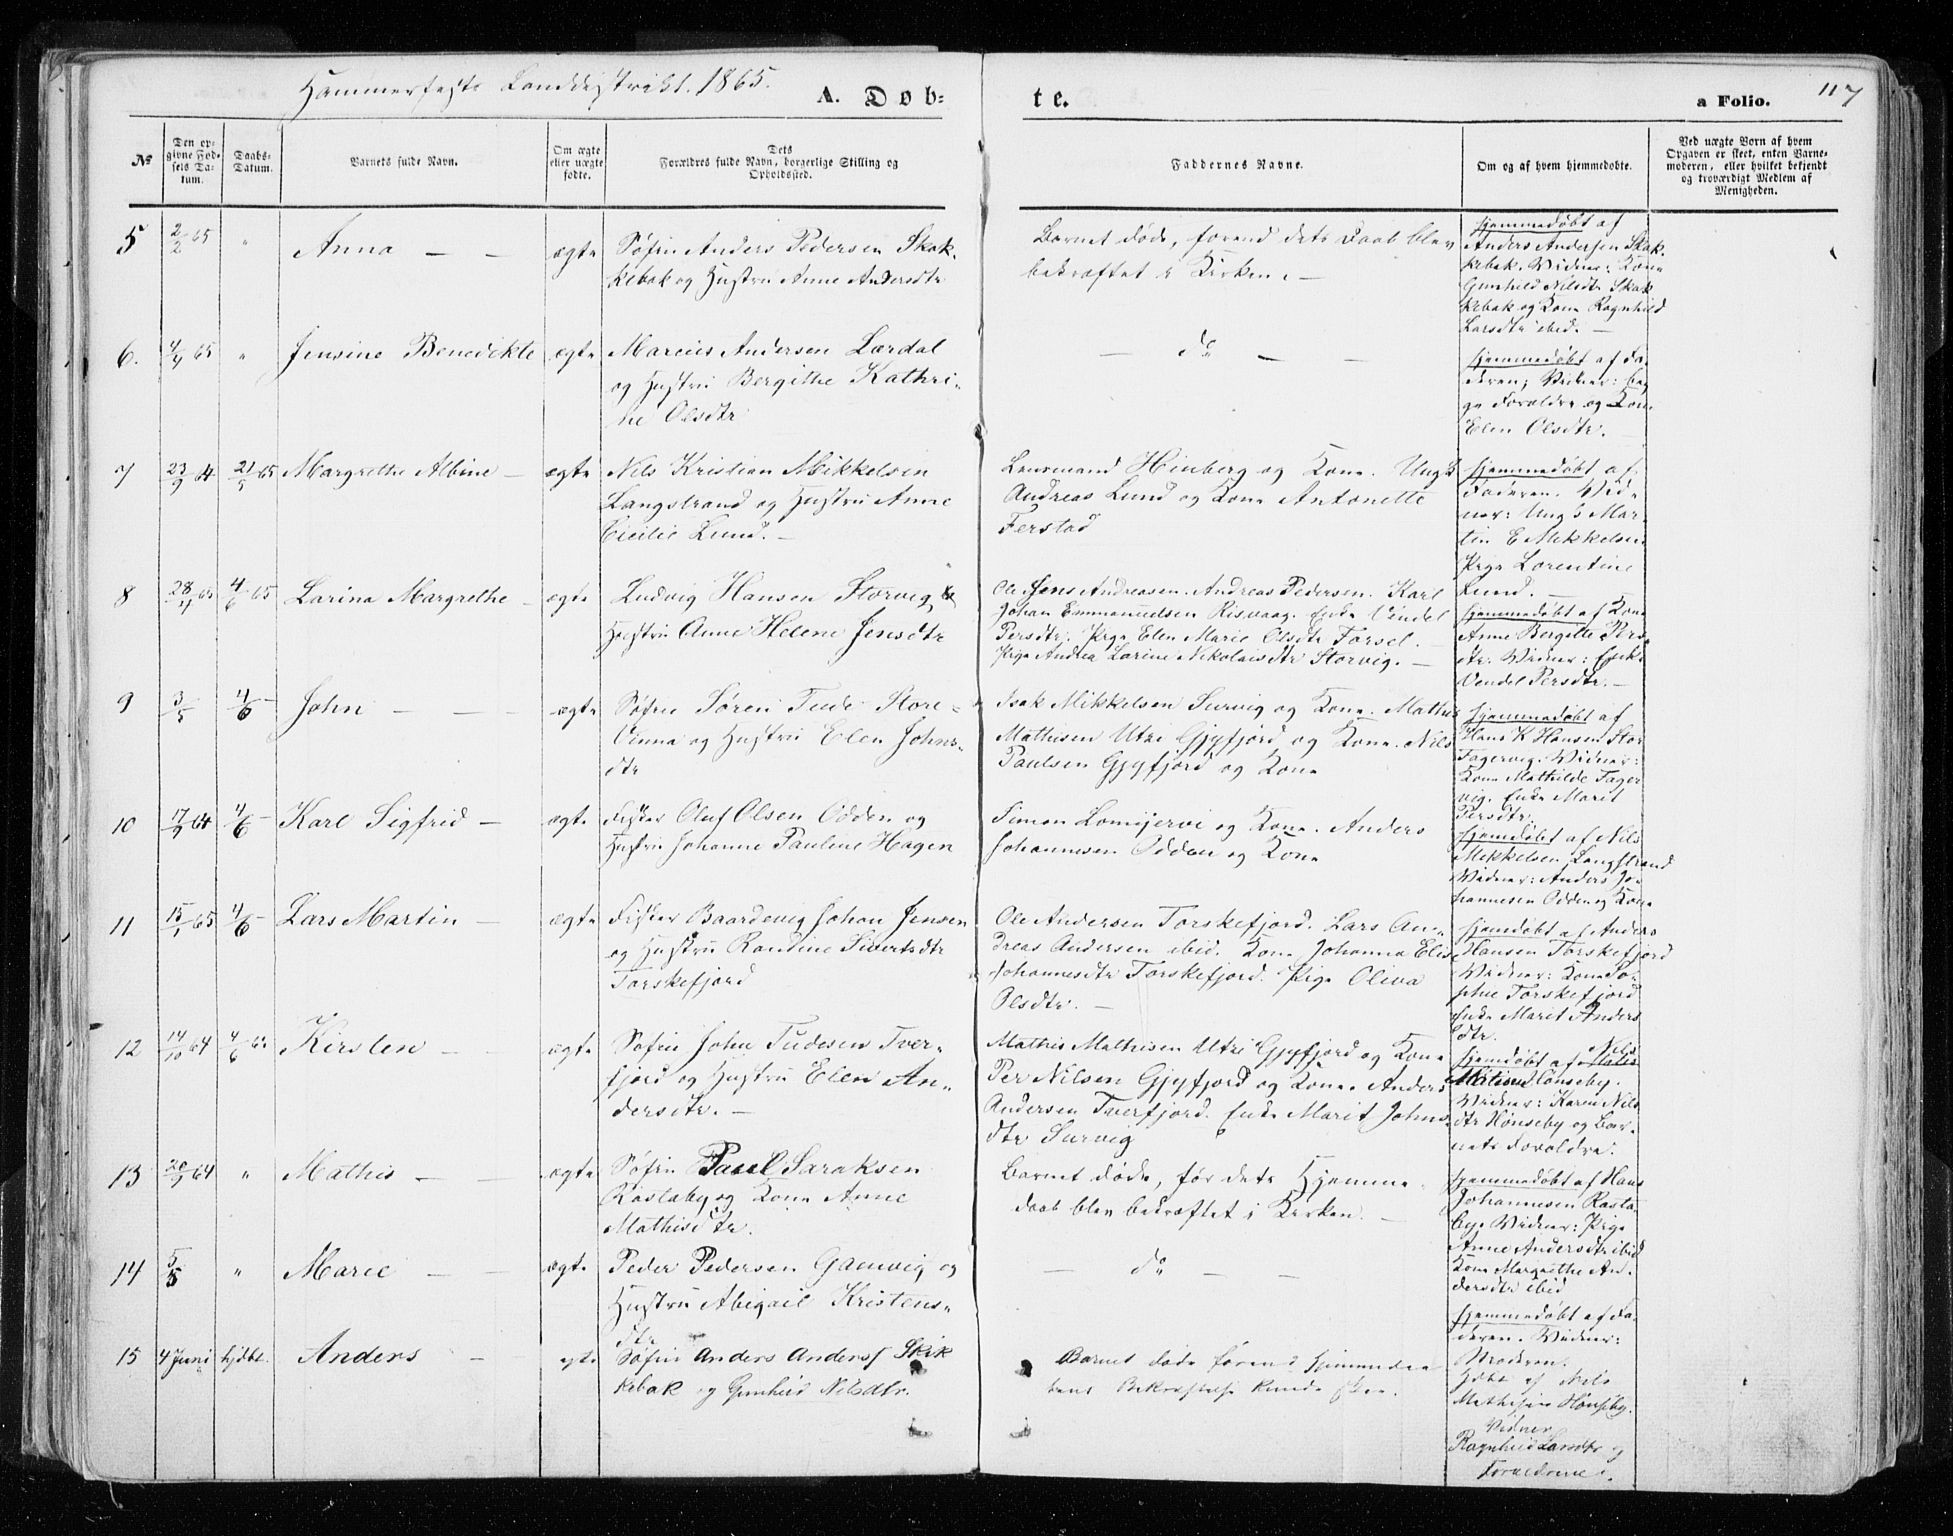 Hammerfests Landdistrikt. 1865.
A. Døb-
te.
a Folio.
117
No
Den op-
givne Fød-
sels Da-
tum.
Daabs-
Datum.
Barnets fulde Navn.
Om ægte
eller uægte
fødte.
Dets
Forældres fulde Navn, borgerlige Stilling og
Opholdssted.
Faddernes Navne.
Om og af hvem hjemmedøbte.
Ved uægte Børn af hvem
Opgaven er skeet, enten Barne-
moderen, eller hvilket bekjendt
og troværdigt Medlem af
Menigheden.
5
2/2 65
"
Anna — —
ægte
Søfin Anders Pedersen Skak-
kebak og Hustru Anne Andersdtr
Barnet døde, forend dets Daab blev
bekræftet i Kirken. —
Hjemmedøbt af
Anders Andersen Skak-
kebak. Vidner: Kone
Gunhild Nilsdtr Skak
kebak og Kone Ragnhild
Larsdtr ibid. —
6.
4/4 65
"
Jensine Benedikte
ægte
Marcus Andersen Lærdal
og Hustru Bergithe Kathri-
ne Olsdtr
— do — —
Hjemmedøbt af Fa-
deren; Vidner: beg-
ge Forældre og Kone
Elen Olsdtr. —
7
23/9 64
21/5 65
Margrethe Albine —
ægte
Nils Kristian Mikkelsen
Langstrand og Hustru Anne
Cicilie Lund. —
Lensmand Hinberg og Kone. Ungk
Andreas Lund og Kone Antonette
Ferstad
Hjemmedøbt af
Faderen. Vid-
ner: Ung's Mar-
tin E Mikkelsen
Pige Lorentine
Lund. —
8
28/4 65
4/6 65
Larina Margrethe —
ægte
Ludvig Hansen Storvig, &
Hustru Anne Helene Jensdtr
Ole Jens Andreasen. Andreas Pedersen. Karl
Johan Emmanuelsen Risvaag. Enke Vendel
Persdtr. Pige Elen Marie Olsdtr Forsel. —
Pige Andrea Larine Nikolaisdtr Storvig. —
Hjemmedøbt af Kone
Anne Bergitte Pers-
dtr. Vidner: Enke
Vendel Persdtr. —
9
3/5
4/6 —
John — —
ægte
Søfin Søren Tude Store-
Vinna og Hustru Elen Johns-
dtr
Isak Mikkelsen Survig og Kone. Mathis
Mathisen Utre Gjyfjord og Kone. Nils
Paulsen Gjyfjord og Kone
Hjemmedøbt af
Hans K Hansen Stor
Fagervig. Vidner:
Kone Mathilde Fager
vig. Enke Marit
Persdtr.
10
17/9 64
4/6 —
Karl Sigfrid —
ægte
Fisker Oluf Olsen Odden og
Hustru Johanne Pauline Hagen
Simon Lomijervi og Kone. Anders
Johannesen Odden og Kone
Hjemdøbt af Nils
Mikkelsen Langstrand
Vidner: Anders Jo-
hannesen Odden og Kone
11
15/1 65
4/6 —
Lars Martin —
ægte
Fisker Baardevig Johan Jensen
og Hustru Randine Sivertsdtr
Torskefjord
Ole Andersen Torskefjord. Lars An-
dreas Andersen ibid. Kone Johanna Elise
Johannesdtr Torskefjord. Pige Oliva
Olsdtr. —
Hjemdøbt af Anders
Hansen Torskefjord
Vidner: Kone So-
phie Torskefjord
Enke Marit Anders
dtr.
12
14/10 64
4/6 65
Kirsten — —
ægte
Søfin John Tudesen Tver-
fjord og Hustru Elen An-
dersdtr. —
Mathis Mathisen Utre Gjyfjord og Kone
Per Nilsen Gjyfjord og Kone. Anders
Andersen Tverfjord. Enke Marit Johns-
dtr Survig
Hjemdøbt af Nils
Hønseby.
Vidner: Karen Nils
dtr Hønseby og Bar-
nets Forældre.
13
20/9 64
"
Mathis — —
ægte
Søfin Paul Saraksen
Rastaby og Kone Anne
Mathisdtr.
Barnet døde, før dets Hjemme-
daab blev bekræftet i Kirken. —
Hjemmedøbt af Hans
Johannesen Rasta-
by. Vidner: Pige
Anne Andersdtr ibid
Kone Margrethe An-
dersdtr ibid
14
5/5
"
Marie — —
ægte
Peder Pedersen Gamvig og
Hustru Abigail Kristens-
dtr
— do — —
Hjemmedøbt af Fa-
deren. Vidner:
Moderen.
15
4 Juni
hjdbt.
Anders —
ægte
Søfin Anders Anders[ Skik
kebak og Gunhild Nilsdtr.
Barnet døde førend Hjemmedaa
bens Bekræftelse kunde skee.
Hjdbt af Nils
Mathisen Hønseby.
Vidner
Ragnhild Larsdtr og
Forældrene.